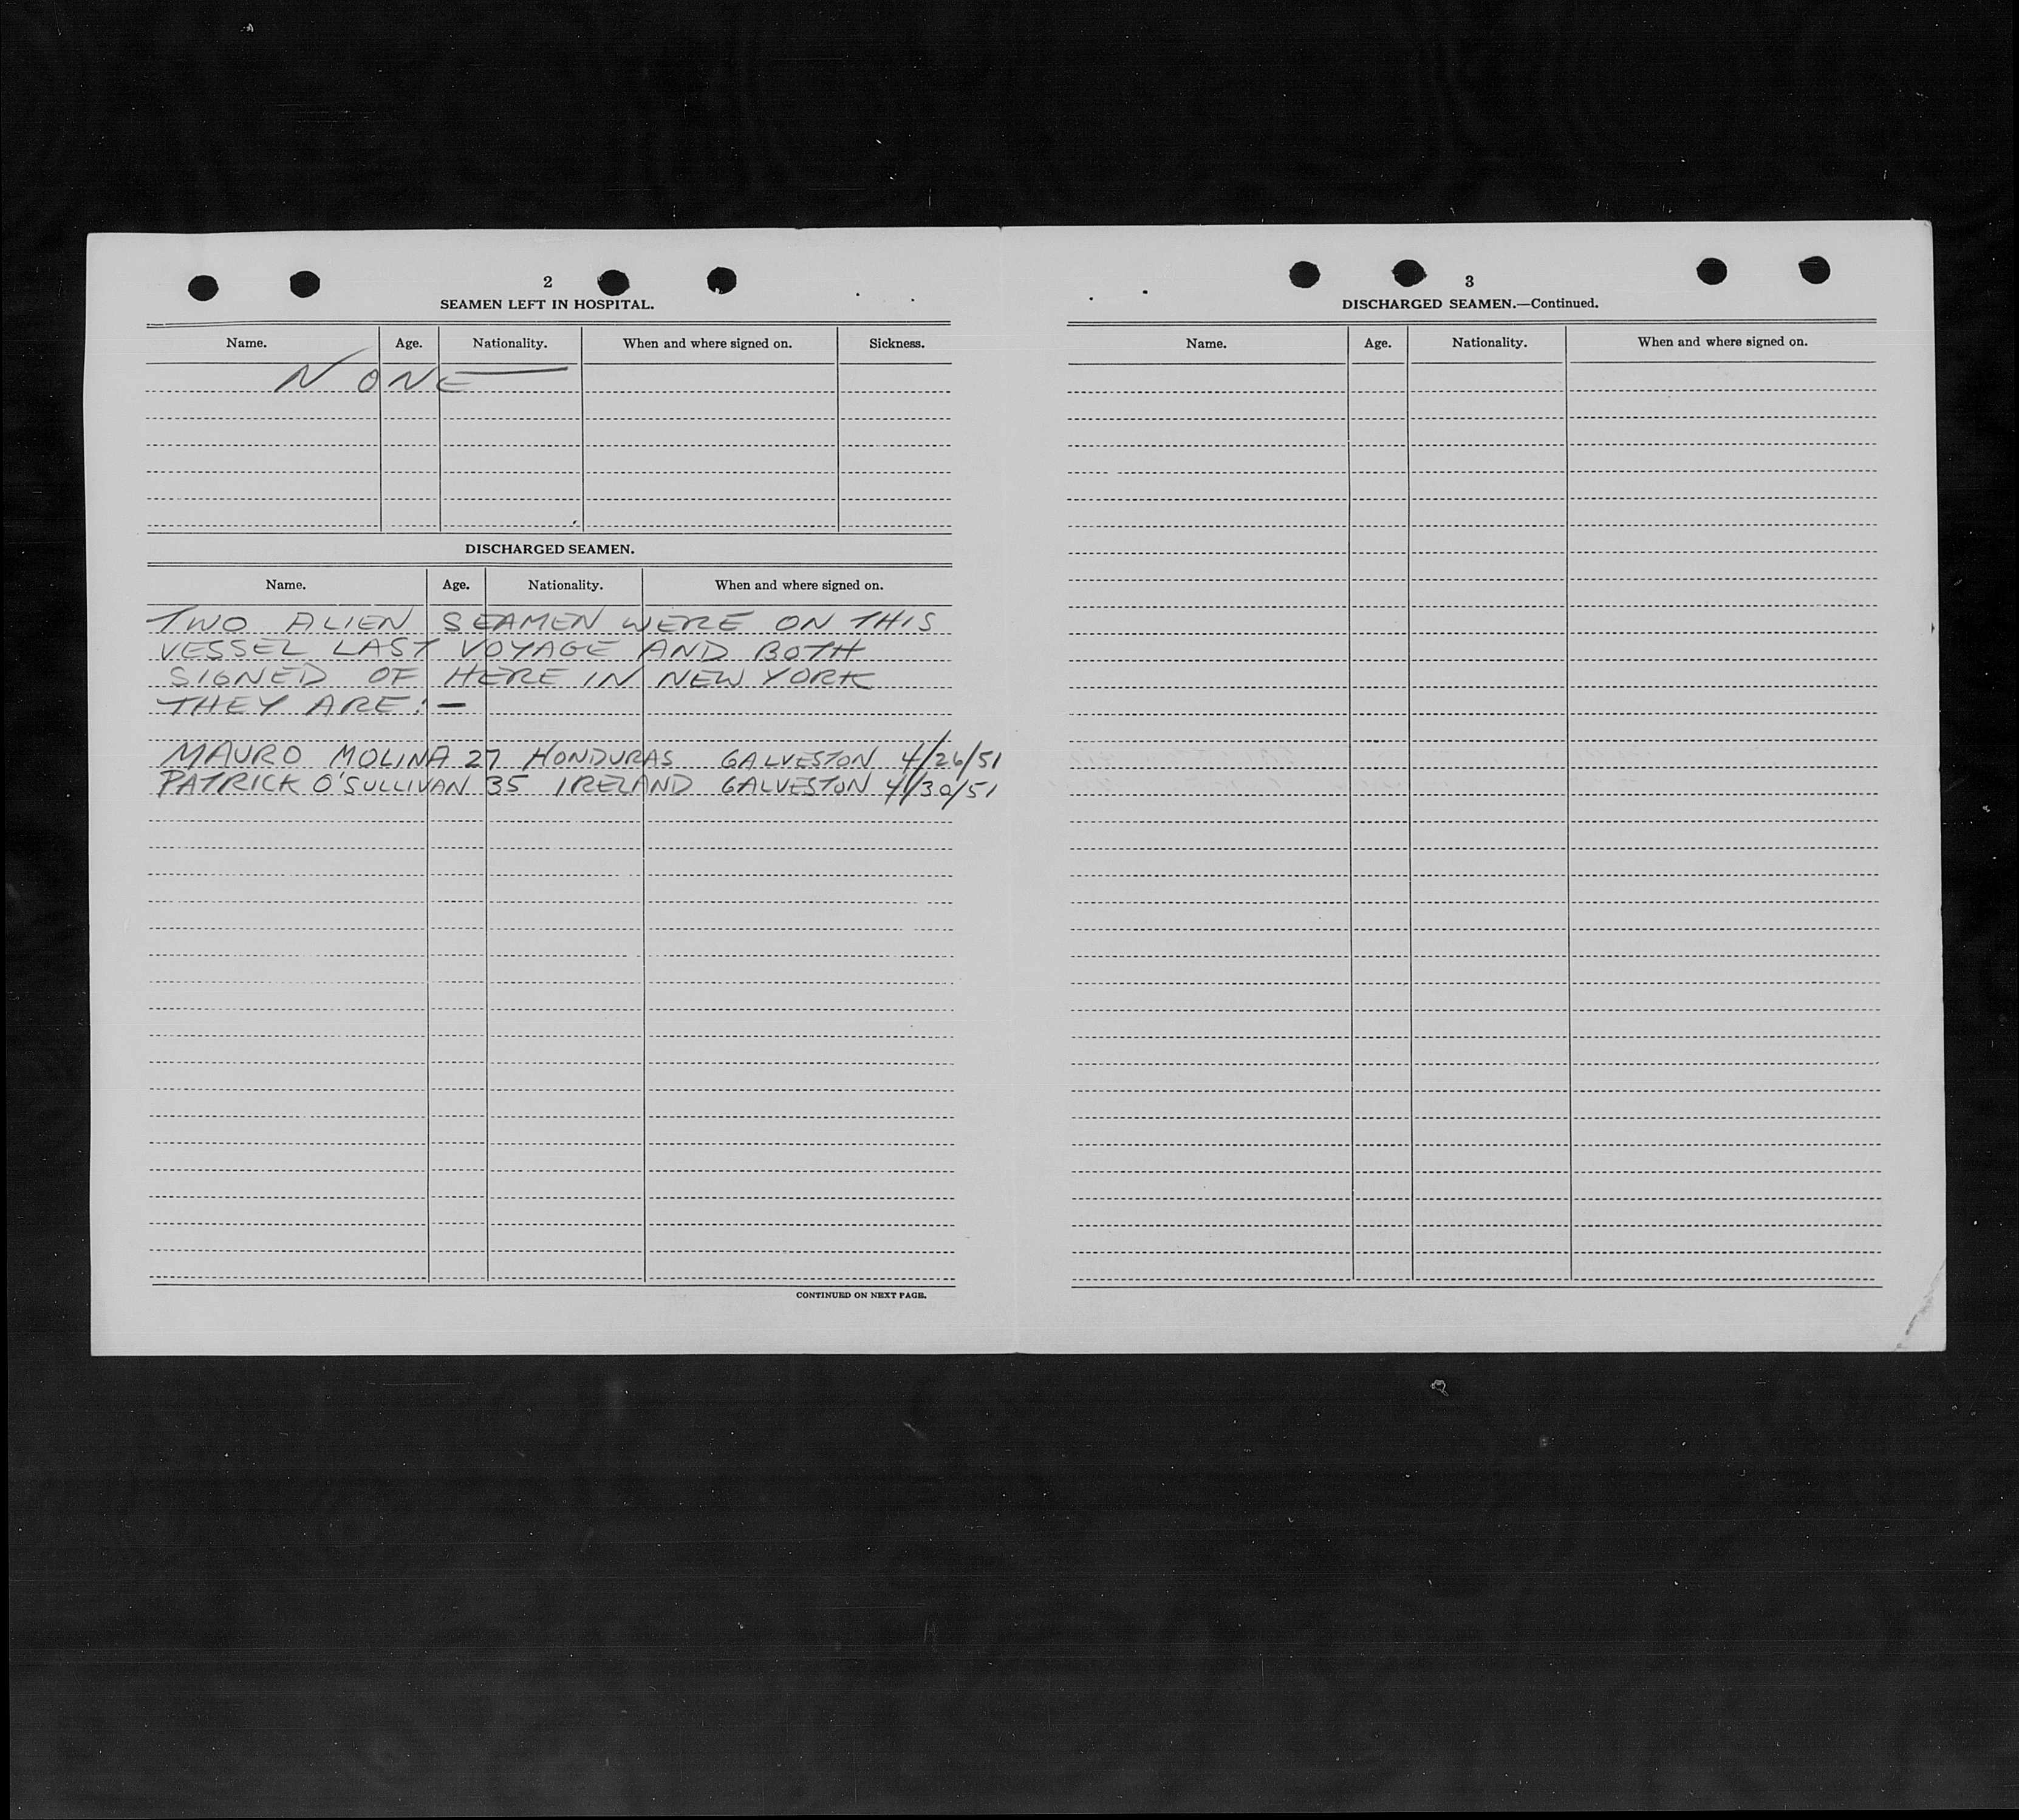 2
SEAMEN LEFT IN HOSPITAL.
Name. Age. Nationality. When and where signed on. Sickness.
NONE
DISCHARGED SEAMEN.
Name. Age. Nationality. When and where signed on.
TWO ALIEN SEAMEN WERE ON THIS
VESSEL LAST VOYAGE AND BOTH
SIGNED OF HERE IN NEW YORK
THEY ARE:—
MAURO MOLINA 27 HONDURAS GALVESTON 4/26/51
PATRICK O'SULLIVAN 35 IRELAND GALVESTON 4/30/51
CONTINUED ON NEXT PAGE.
3
DISCHARGED SEAMEN.—Continued.
Name. Age. Nationality. When and where signed on.